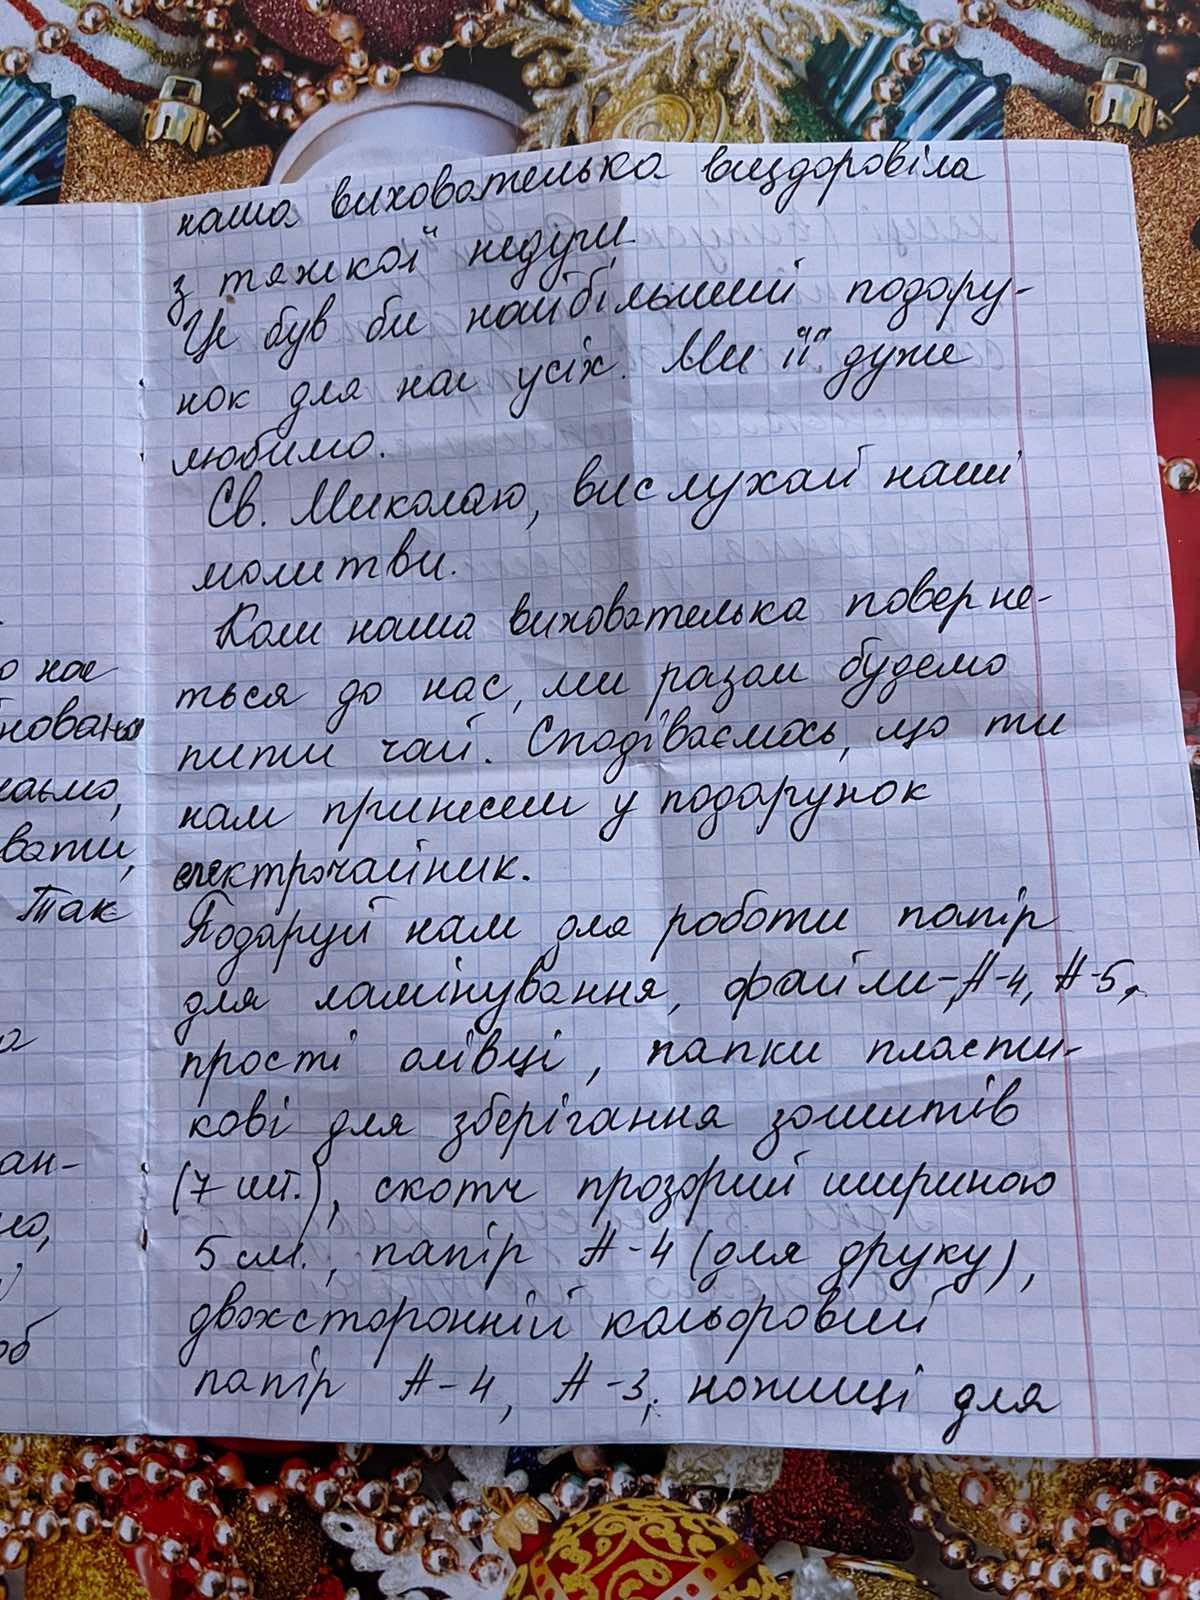 о нас
новано
аємо,
вати,
Так
а
ан-
но,
об
наша вихователька виздоровіла
з тяжкої недуги.
Це був би найбільший подару-
нок для нас усіх. Ми її дуже
любимо.
Св. Миколаю, вислухай наші
молитви.
Коли наша вихователька поверне-
ться до нас, ми разом будемо
пити чай. Сподіваємось, що ти
нам принесеш у подарунок
електрочайник.
Подаруй нам для роботи папір
для ламінування, файли-А-4, А-5,
прості олівці, папки пласти-
кові для зберігання зошитів
(7 шт.), скотч прозорий шириною
5 см., папір А-4 (для друку),
двохсторонній кольоровий
папір А-4, А-3, ножиці для